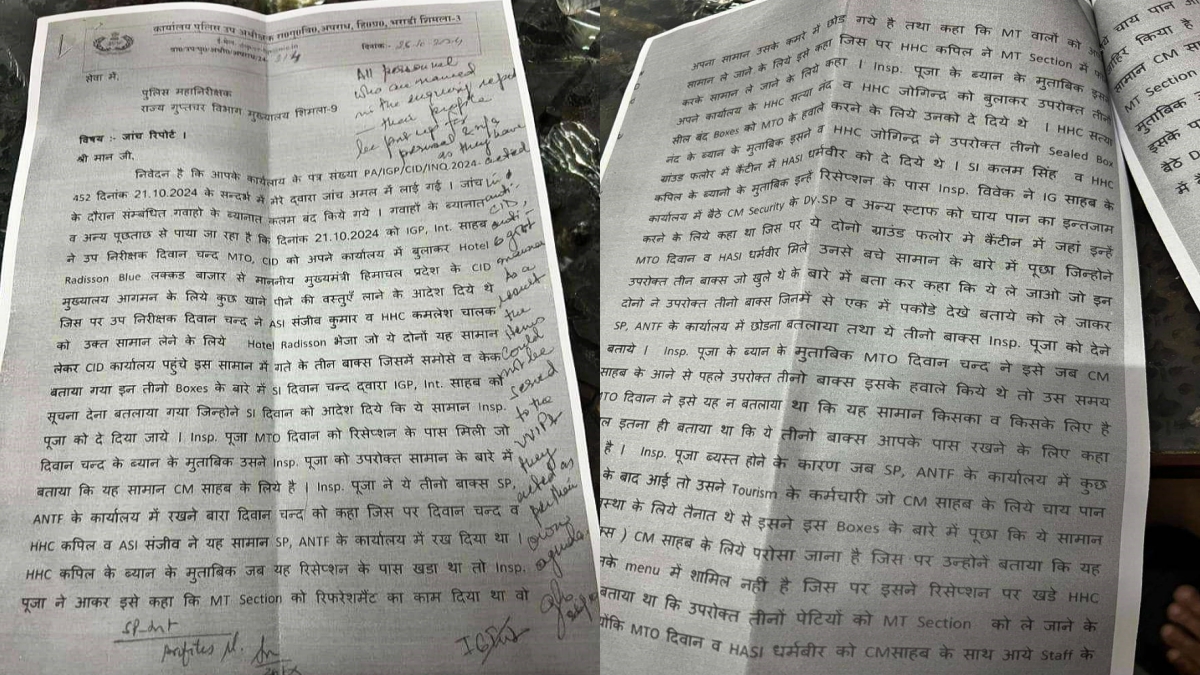 कार्यालय पुलिस उप अधीक्षक रा0गु0वि0,अपराध, हि0प्र0, भराडी शिमला-3
दिनांकः- 25-10-2024
सेवा में,
पुलिस महानिरीक्षक
राज्य गुप्तचर विभाग मुख्यालय शिमला-9
विषय :- जांच रिपोर्ट ।
श्री मान जी,
निवेदन है कि आपके कार्यालय के पत्र संख्या PA/IGP/CID/INQ.2024-
452 दिनांक 21.10.2024 के सन्दर्भ में मेरे द्वारा जांच अमल में लाई गई । जांच
के दौरान संम्बधित गवाहो के ब्यानात कलम बंद किये गये । गवाहों के ब्यानात
व अन्य पूछताछ से पाया जा रहा है कि दिनांक 21.10.2024 को IGP, Int. साहब
ने उप निरीक्षक दिवान चन्द MTO, CID को अपने कार्यालय में बुलाकर Hotel
Radisson Blue लक्कड बाजार से माननीय मुख्यमंत्री हिमाचल प्रदेश के CID
मुख्यालय आगमन के लिये कुछ खाने पीने की वस्तुएँ लाने के आदेश दिये थे
जिस पर उप निरीक्षक दिवान चन्द ने ASI संजीव कुमार व HHC कमलेश चालक
को उक्त सामान लेने के लिये Hotel Radisson भेजा जो ये दोनों यह सामान
लेकर CID कार्यालय पहुंचे इस सामान में गते के तीन बाक्स जिसमें समोसे व केक
बताया गया इन तीनो Boxes के बारे में SI दिवान चन्द दवारा IGP, Int. साहब को
सूचना देना बतलाया गया जिन्होने SI दिवान को आदेश दिये कि ये सामान Insp.
पूजा को दे दिया जाये । Insp. पूजा MTO दिवान को रिसेप्शन के पास मिली जो
दिवान चन्द के ब्यान के मुताबिक उसने Insp. पूजा को उपरोक्त सामान के बारे में
बताया कि यह सामान CM साहब के लिये है । Insp. पूजा ने ये तीनो बाक्स SP,
ANTF के कार्यालय में रखने बारा दिवान चन्द को कहा जिस पर दिवान चन्द व
HHC कपिल व ASI संजीव ने यह सामान SP, ANTF के कार्यालय में रख दिया था ।
HHC कपिल के ब्यान के मुताबिक जब यह रिसेप्शन के पास खडा था तो Insp.
पूजा ने आकर इसे कहा कि MT Section को रिफरेशमैंट का काम दिया था वो
All personnel
who are named
in the enquiry report
- their profiles
be put up for
perusal & n/a
as they have
acted
in
anti-
CID,
anti-
govt
manner
As a
result
the
items
could
not be
served
to the
VVIPs
they
acted as
per their
own
agenda
SP-Int
profiles pl.
अपना सामान उसके कमरे में छोड गये है तथा कहा कि MT वालों को
सामान ले जाने के लिए इसे कहा जिस पर HHC कपिल ने MT Section में
करके सामान ले जाने के लिये कहा । Insp. पूजा के ब्यान के मुताबिक इसने
अपने कार्यालय के HHC सत्या नंद व HHC जोगिन्द्र को बुलाकर उपरोक्त तीनो
सील बंद Boxes को MTO के हवाले करने के लिये उनको दे दिये थे । HHC सत्या
नंद के ब्यान के मुताबिक इसने व HHC जोगिन्द्र ने उपरोक्त तीनो Sealed Box
ग्रांउड फलोर में कैंटीन में HASI धर्मवीर को दे दिये थे । SI कलम सिंह व HHC
कपिल के ब्यानो के मुताबिक इन्हें रिसेप्शन के पास Insp. विवेक ने IG साहब के
कार्यालय में बैठे CM Security के Dy.SP व अन्य स्टाफ को चाय पान का इन्तजाम
करने के लिये कहा था जिस पर ये दोनो ग्रांउड फलोर में कैंटीन में जहां इन्हें
MTO दिवान व HASI धर्मवीर मिले उनसे बचे सामान के बारे में पूछा जिन्होने
उपरोक्त तीन बाक्स जो खुले थे के बारे में बता कर कहा कि ये ले जाओ जो इन
दोनो ने उपरोक्त तीनो बाक्स जिनमें से एक में पकौडे देखे बताये को ले जाकर
SP, ANTF के कार्यालय में छोडना बतलाया तथा ये तीनो बाक्स Insp. पूजा को देने
बताये । Insp. पूजा के ब्यान के मुताबिक MTO दिवान चन्द ने इसे जब CM
साहब के आने से पहले उपरोक्त तीनो बाक्स इसके हवाले किये थे तो उस समय
TO दिवान ने इसे यह न बतलाया था कि यह सामान किसका व किसके लिए है
ल इतना ही बताया था कि ये तीनो बाक्स आपके पास रखने के लिए कहा
है । Insp. पूजा ब्यस्त होने के कारण जब SP, ANTF के कार्यालय में कुछ
के बाद आई तो उसने Tourism के कर्मचारी जो CM साहब के लिये चाय पान
स्था के लिये तैनात थे से इसने इस Boxes के बारे में पूछा कि ये सामान
क्स ) CM साहब के लिये परोसा जाना है जिस पर उन्होनें बताया कि यह
नके menu में शामिल नहीं है जिस पर इसने रिसेप्शन पर खडे HHC
बताया था कि उपरोक्त तीनों पेटियों को MT Section को ले जाने के
योंकि MTO दिवान व HASI धर्मबीर को CMसाहब के साथ आये Staff के
चाय पान
सामान CM
MT Section
मुताबिक
इसके
बैठे
में